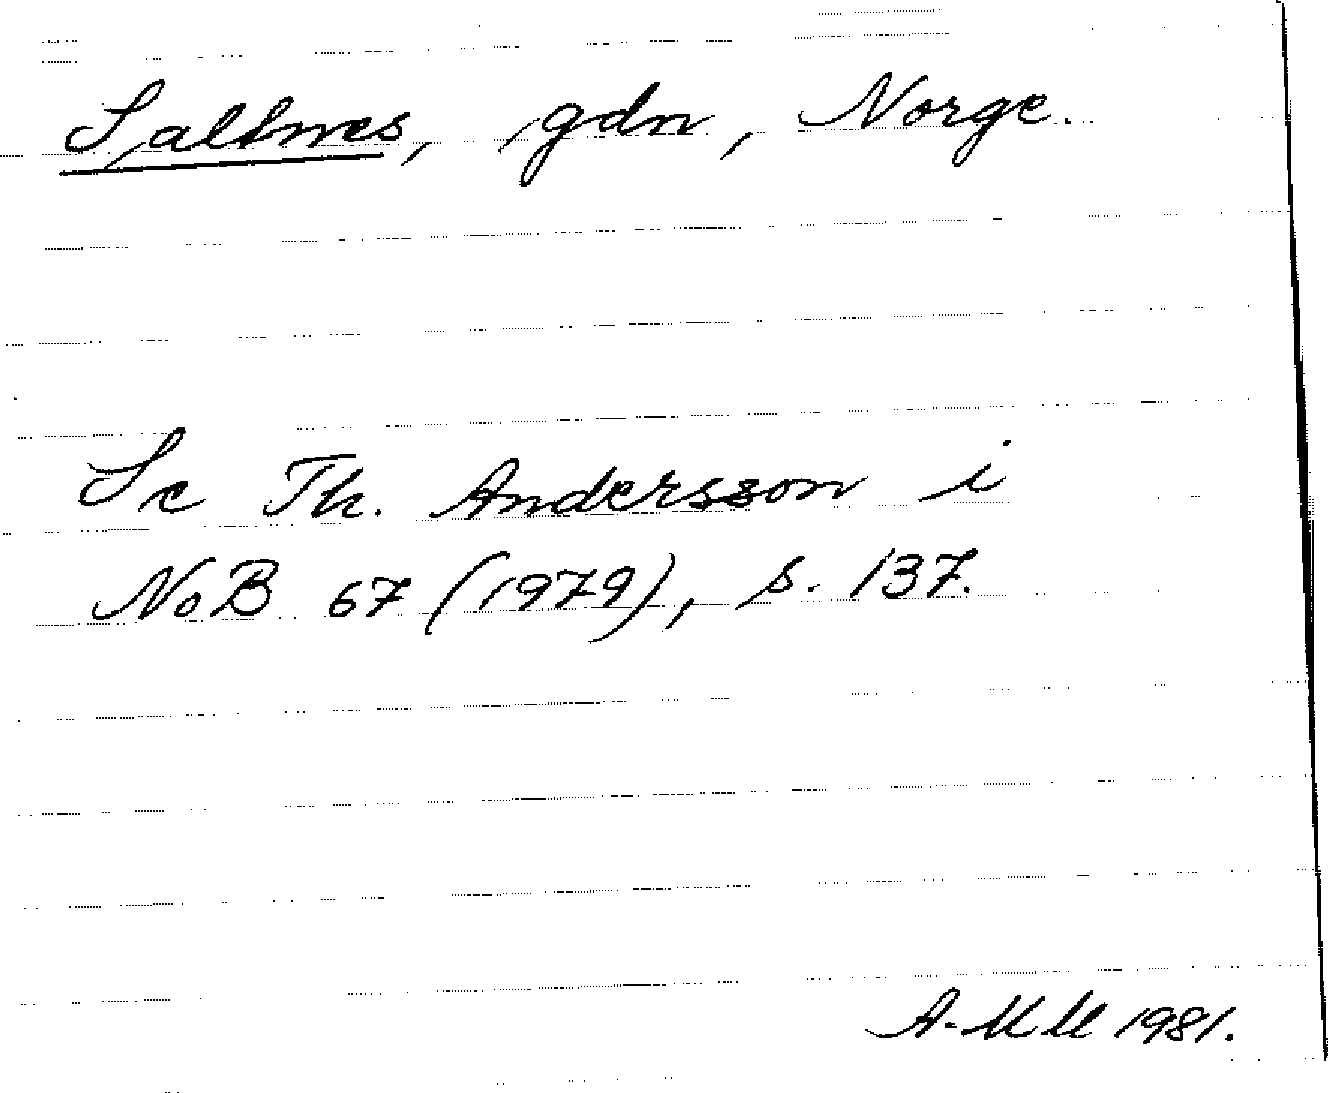 Saltnes, gdn, Norge.
Se Th. Andersson i
NoB 67 (1979), s. 137.
A-MM 1981.